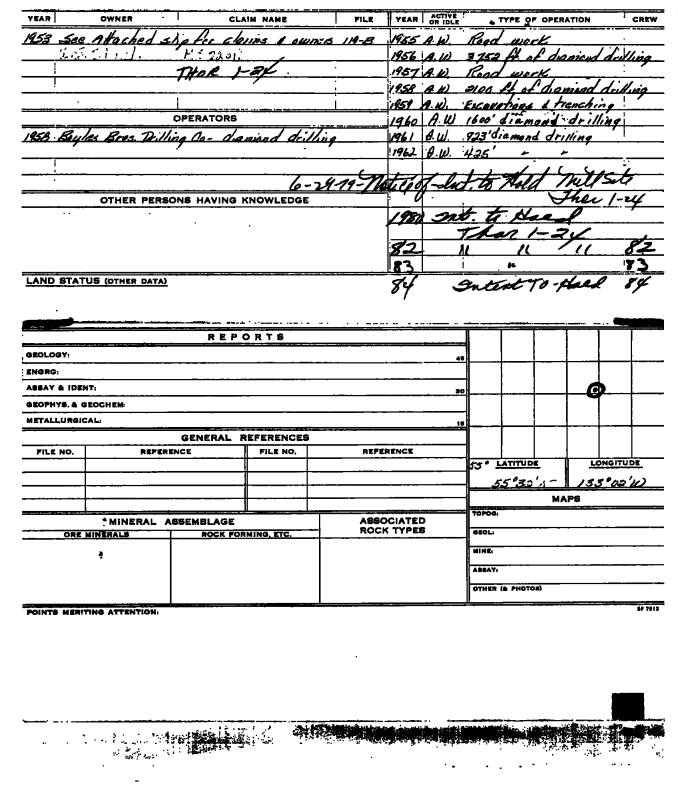 YEAR OWNER CLAIM NAME FILE YEAR ACTIVE OR IDLE TYPE OF OPERATION CREW
1953 See Attached slip for claims & owners 119-B
THOR 1-24
1955 A.W. Road work
1956 A.W. 3752 ft of diamond drilling
1957 A.W. Road work
1958 A.W. 2100 ft of diamond drilling
1959 A.W. Excavations & trenching
OPERATORS
1960 A.W 1600' diamond drilling
1953 Boyles Bros. Drilling Co- diamond drilling
1961 A.W. 923' diamond drilling
1962 A.W. 425' " "
6-29-79-Notice of Int. to Hold Mill Site
Thor 1-24
OTHER PERSONS HAVING KNOWLEDGE
1980 Int. to Hold
Thor 1-24
82 " " " 82
83 " 83
LAND STATUS (OTHER DATA)
84 Intent To-Hold 84
REPORTS
GEOLOGY:
ENGRG:
ASSAY & IDENT:
GEOPHYS. & GEOCHEM:
METALLURGICAL:
45
30
15
C
GENERAL REFERENCES
FILE NO. REFERENCE FILE NO. REFERENCE
55° LATITUDE LONGITUDE
55°32' 133°02'W
MAPS
TOPOG:
GEOL:
MINE:
ASSAY:
OTHER (& PHOTOS)
MINERAL ASSEMBLAGE ASSOCIATED ROCK TYPES
ORE MINERALS ROCK FORMING, ETC.
POINTS MERITING ATTENTION:
SF 7012